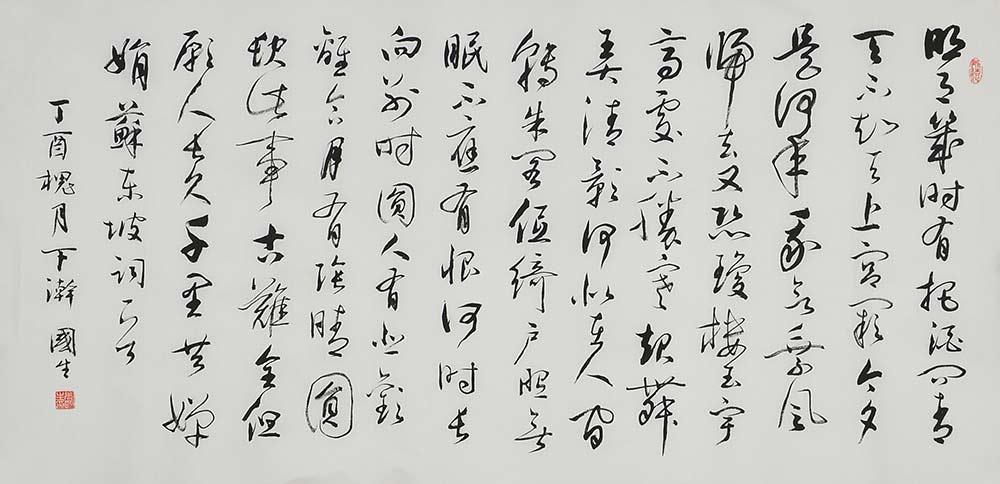 明月幾时有把酒問青
天不知天上宫闕今夕
是何年我欲乘風
歸去又恐瓊樓玉宇
高處不勝寒起舞
弄清影何似在人間
轉朱閣低綺户照無
眠不應有恨何时長
向別时圓人有悲歡
離合月有陰晴圓
缺此事古難全但
願人長久千里共嬋
娟蘇东坡詞一首
丁酉槐月下澣國生